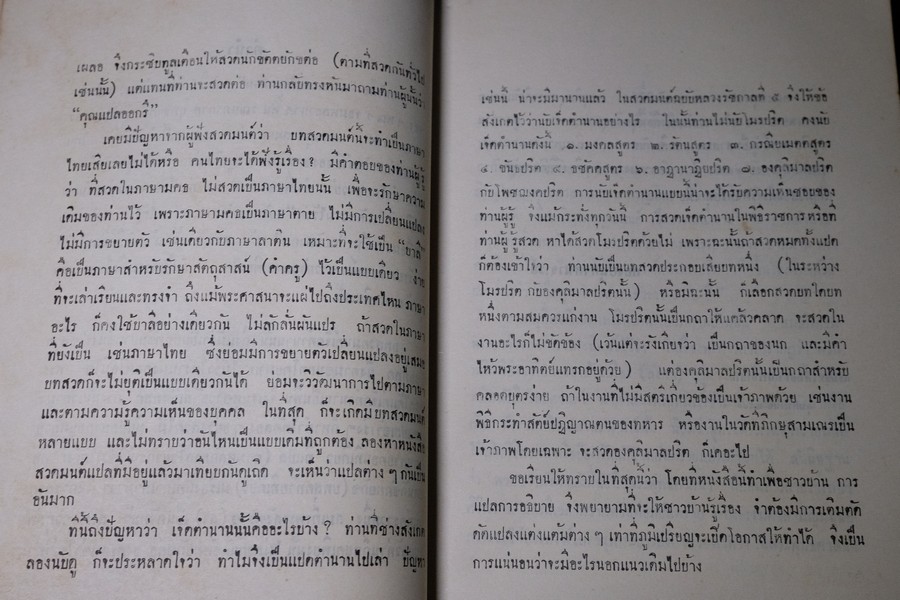 เผลอ จึงกระซิบทูลเตือนให้สวดนักขัตตยักขต่อ (ตามที่สวดกันทั่วไป
เช่นนั้น) แต่แทนที่ท่านจะสวดต่อ ท่านกลับทรงหันมาถามท่านผู้นั้นว่า
“คุณแปลออกรึ”
เคยมีปัญหาจากผู้ฟังสวดมนต์ว่า บทสวดมนต์นี้จะทำเป็นภาษา
ไทยเสียเลยไม่ได้หรือ คนไทยจะได้ฟังรู้เรื่อง? มีคำตอบของท่านผู้รู้
ว่า ที่สวดในภาษามคธ ไม่สวดเป็นภาษาไทยนั้น เพื่อจะรักษาความ
เดิมของท่านไว้ เพราะภาษามคธเป็นภาษาตาย ไม่มีการเปลี่ยนแปลง
ไม่มีการขยายตัว เช่นเดียวกับภาษาลาติน เหมาะที่จะใช้เป็น “บาลี”
คือเป็นภาษาสำหรับรักษาสัตถุสาสน์ (คำครู) ไว้เป็นแบบเดียว ง่าย
ที่จะเล่าเรียนและทรงจำ ถึงแม้พระศาสนาจะแผ่ไปถึงประเทศไหน ภาษา
อะไร ก็คงใช้บาลีอย่างเดียวกัน ไม่ลักลั่นผันแปร ถ้าสวดในภาษา
ที่ยังเป็น เช่นภาษาไทย ซึ่งย่อมมีการขยายตัวเปลี่ยนแปลงอยู่เสมอ
บทสวดก็จะไม่ยุติเป็นแบบเดียวกันได้ ย่อมจะวิวัฒนาการไปตามภาษา
และตามความรู้ความเห็นของบุคคล ในที่สุด ก็จะเกิดมีบทสวดมนต์
หลายแบบ และไม่ทราบว่าอันไหนเป็นแบบเดิมที่ถูกต้อง ลองหาหนังสือ
สวดมนต์แปลที่มีอยู่แล้วมาเทียบกันดูเถิด จะเห็นว่าแปลต่าง ๆ กันเป็น
อันมาก
ทีนี้ถึงปัญหาว่า เจ็ดตำนานนั้นคืออะไรบ้าง? ท่านที่ช่างสังเกต
ลองนับดู ก็จะประหลาดใจว่า ทำไมจึงเป็นแปดตำนานไปเล่า ปัญหา
เช่นนี้ น่าจะมีมานานแล้ว ในสวดมนต์ฉบับหลวงรัชกาลที่ ๕ จึงให้ข้อ
สังเกตไว้ว่านับเจ็ดตำนานอย่างไร ในนั้นท่านไม่นับโมรปริต คงนับ
เจ็ดตำนานดังนี้ ๑. มงคลสูตร ๒. รัตนสูตร ๓. กรณียเมตตสูตร
๔. ขันธปริต ๕. ธชัคคสูตร ๖. อาฏานาฏิยปริต ๗. องคุลิมาลปริต
กับโพชฌงคปริต การนับเจ็ดตำนานแบบนี้น่าจะได้รับความเห็นชอบของ
ท่านผู้รู้ จึงแม้กระทั่งทุกวันนี้ การสวดเจ็ดตำนานในพิธีราชการหรือที่
ท่านผู้รู้สวด หาได้สวดโมรปริตด้วยไม่ เพราะฉะนั้นถ้าสวดหมดทั้งแปด
ก็ต้องเข้าใจว่า ท่านนับเป็นบทสวดประกอบเสียบทหนึ่ง (ในระหว่าง
โมรปริต กับองคุลิมาลปริตนั้น) หรือมิฉะนั้น ก็เลือกสวดบทใดบท
หนึ่งตามสมควรแก่งาน โมรปริตนั้นเป็นคาถาให้แคล้วคลาด จะสวดใน
งานอะไรก็ไม่ขัดข้อง (เว้นแต่จะรังเกียจว่า เป็นคาถาของนก และมีคำ
ไหว้พระอาทิตย์แทรกอยู่ด้วย) แต่องคุลิมาลปริตนั้นเป็นคาถาสำหรับ
คลอดบุตรง่าย ถ้าในงานที่ไม่มีสตรีเกี่ยวข้องเป็นเจ้าภาพด้วย เช่นงาน
พิธีกระทำสัตย์ปฏิญาณตนของทหาร หรืองานในวัดที่ภิกษุสามเณรเป็น
เจ้าภาพโดยเฉพาะ จะสวดองคุลิมาลปริต ก็เคอะไป
ขอเรียนให้ทราบในที่สุดนี้ว่า โดยที่หนังสือนี้ทำเพื่อชาวบ้าน การ
แปลการอธิบาย จึงพยายามที่จะให้ชาวบ้านรู้เรื่อง จำต้องมีการเติมตัด
ดัดแปลงแต่งแต้มต่าง ๆ เท่าที่ภูมิเปรียญจะเปิดโอกาสให้ทำได้ จึงเป็น
การแน่นอนว่าจะมีอะไรนอกแนวเดิมไปบ้าง